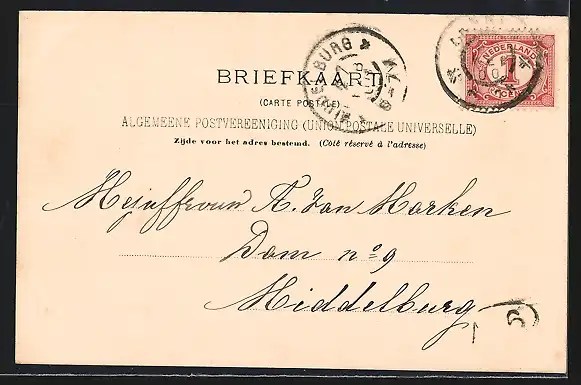 BRIEFKAART
(CARTE POSTALE)
ALGEMEENE POSTVEREENIGING (UNION POSTALE UNIVERSELLE)
Zijde voor het adres bestemd. (Côté réservé à l'adresse)
MIDDELBURG
NEDERLAND
1
CENT
Mejuffrouw A. Van Marken
Dam no 9
Middelburg